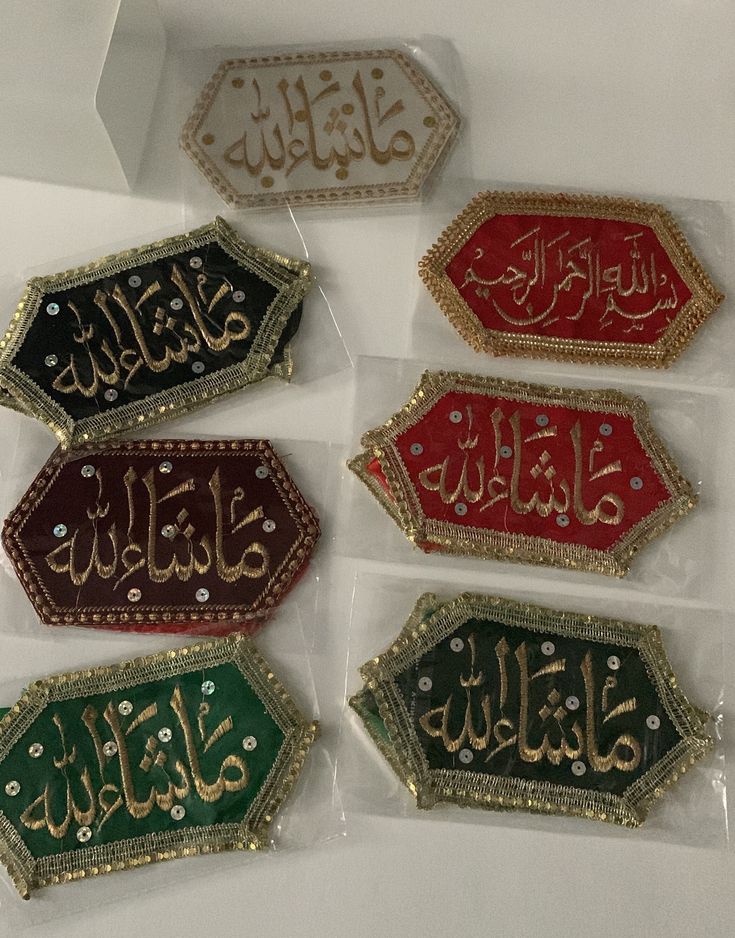 ما شاء الله
بسم الله الرحمن الرحيم
ما شاء الله
ما شاء الله
ما شاء الله
ما شاء الله
ما شاء الله